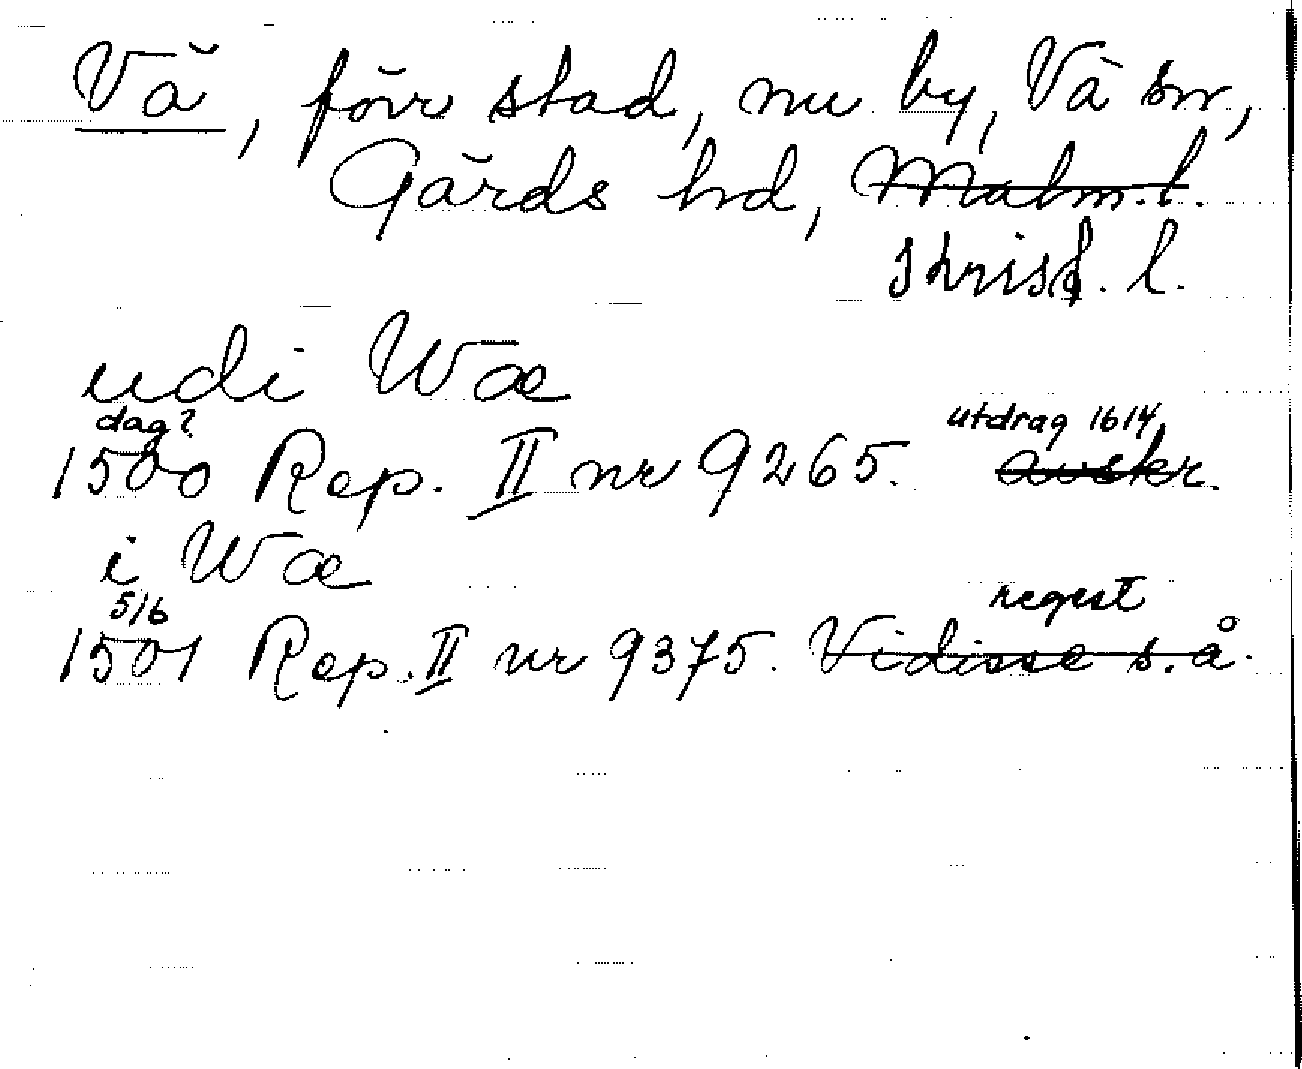 Vä, förr stad, nu by, Vä sn,
Gärds hd, Malm. l.
Krist. l.
udi Wæ
dag? utdrag 1614
1500 Rep. II nr 9265. avskr.
i Wæ
5/6 regest
1501 Rep. II nr 9375. Vidisse s. å.